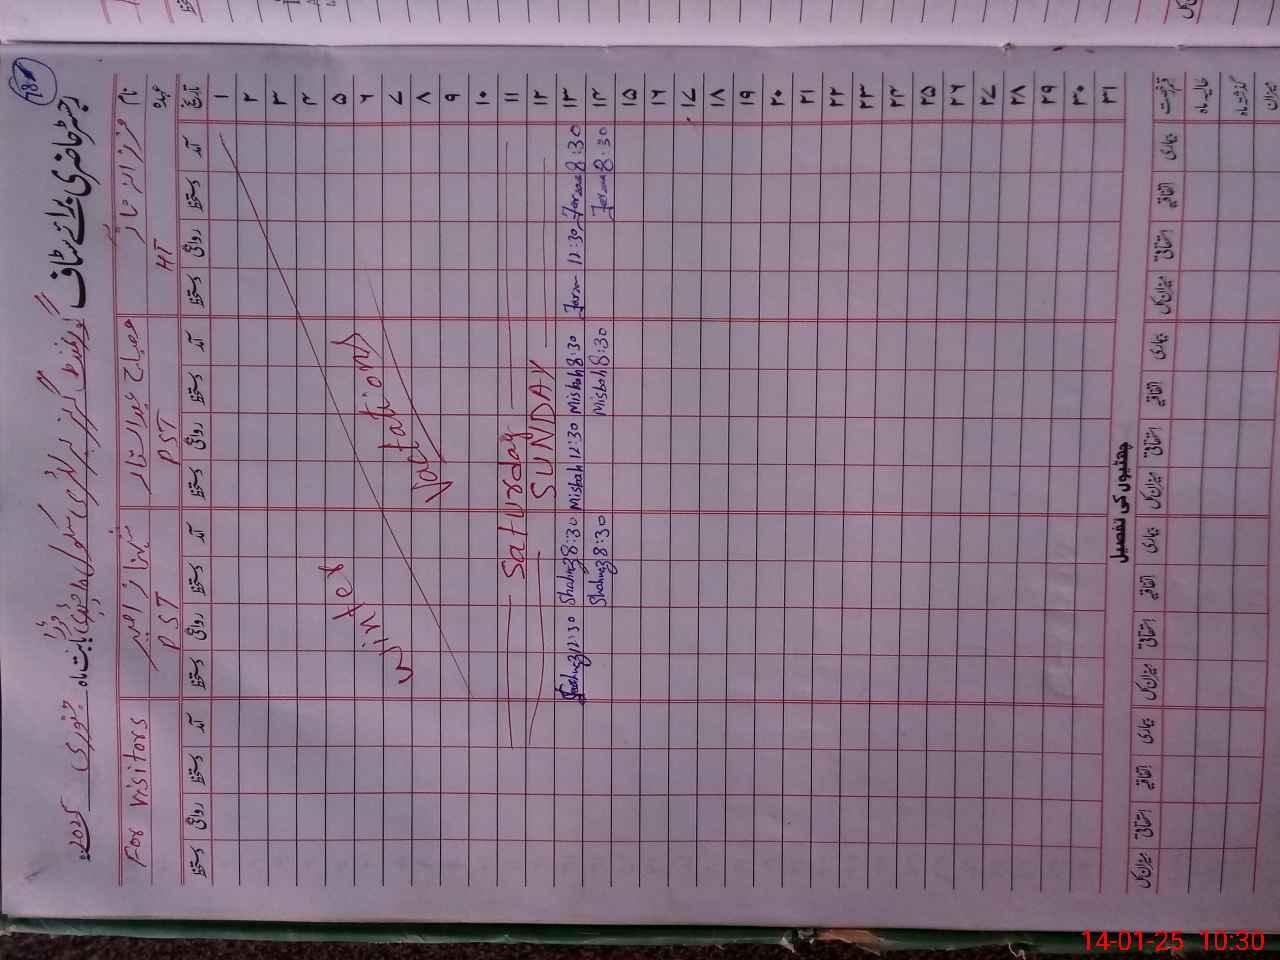 48
رجسٹر حاضری برائے سٹاف گورنمنٹ گرلز پرائمری سکول
بابت ماہ جنوری 2025ء
نام فرزانہ ناز مصباح عبدالستار شہناز اختر For visitors
عہدہ HT PST PST
تاریخ آمد دستخط روانگی دستخط آمد دستخط روانگی دستخط آمد دستخط روانگی دستخط آمد دستخط روانگی دستخط
۱
۲
۳
۴
۵
۶
۷
۸
۹
winter Vactations
۱۰
۱۱ Saturday
۱۲ SUNDAY
۱۳ 8:30 Farzana 12:30 Farzana 8:30 Misbah 12:30 Misbah 8:30 Shahnaz 12:30 Shahnaz
۱۴ 8:30 Farzana 8:30 Misbah 8:30 Shahnaz
۱۵
۱۶
۱۷
۱۸
۱۹
۲۰
۲۱
۲۲
۲۳
۲۴
۲۵
۲۶
۲۷
۲۸
۲۹
۳۰
۳۱
چھٹیوں کی تفصیل
قسم رخصت بیماری اتفاقیہ استحقاقی میزان کل بیماری اتفاقیہ استحقاقی میزان کل بیماری اتفاقیہ استحقاقی میزان کل بیماری اتفاقیہ استحقاقی میزان کل
حالیہ ماہ
گزشتہ ماہ
میزان
14-01-25 10:30